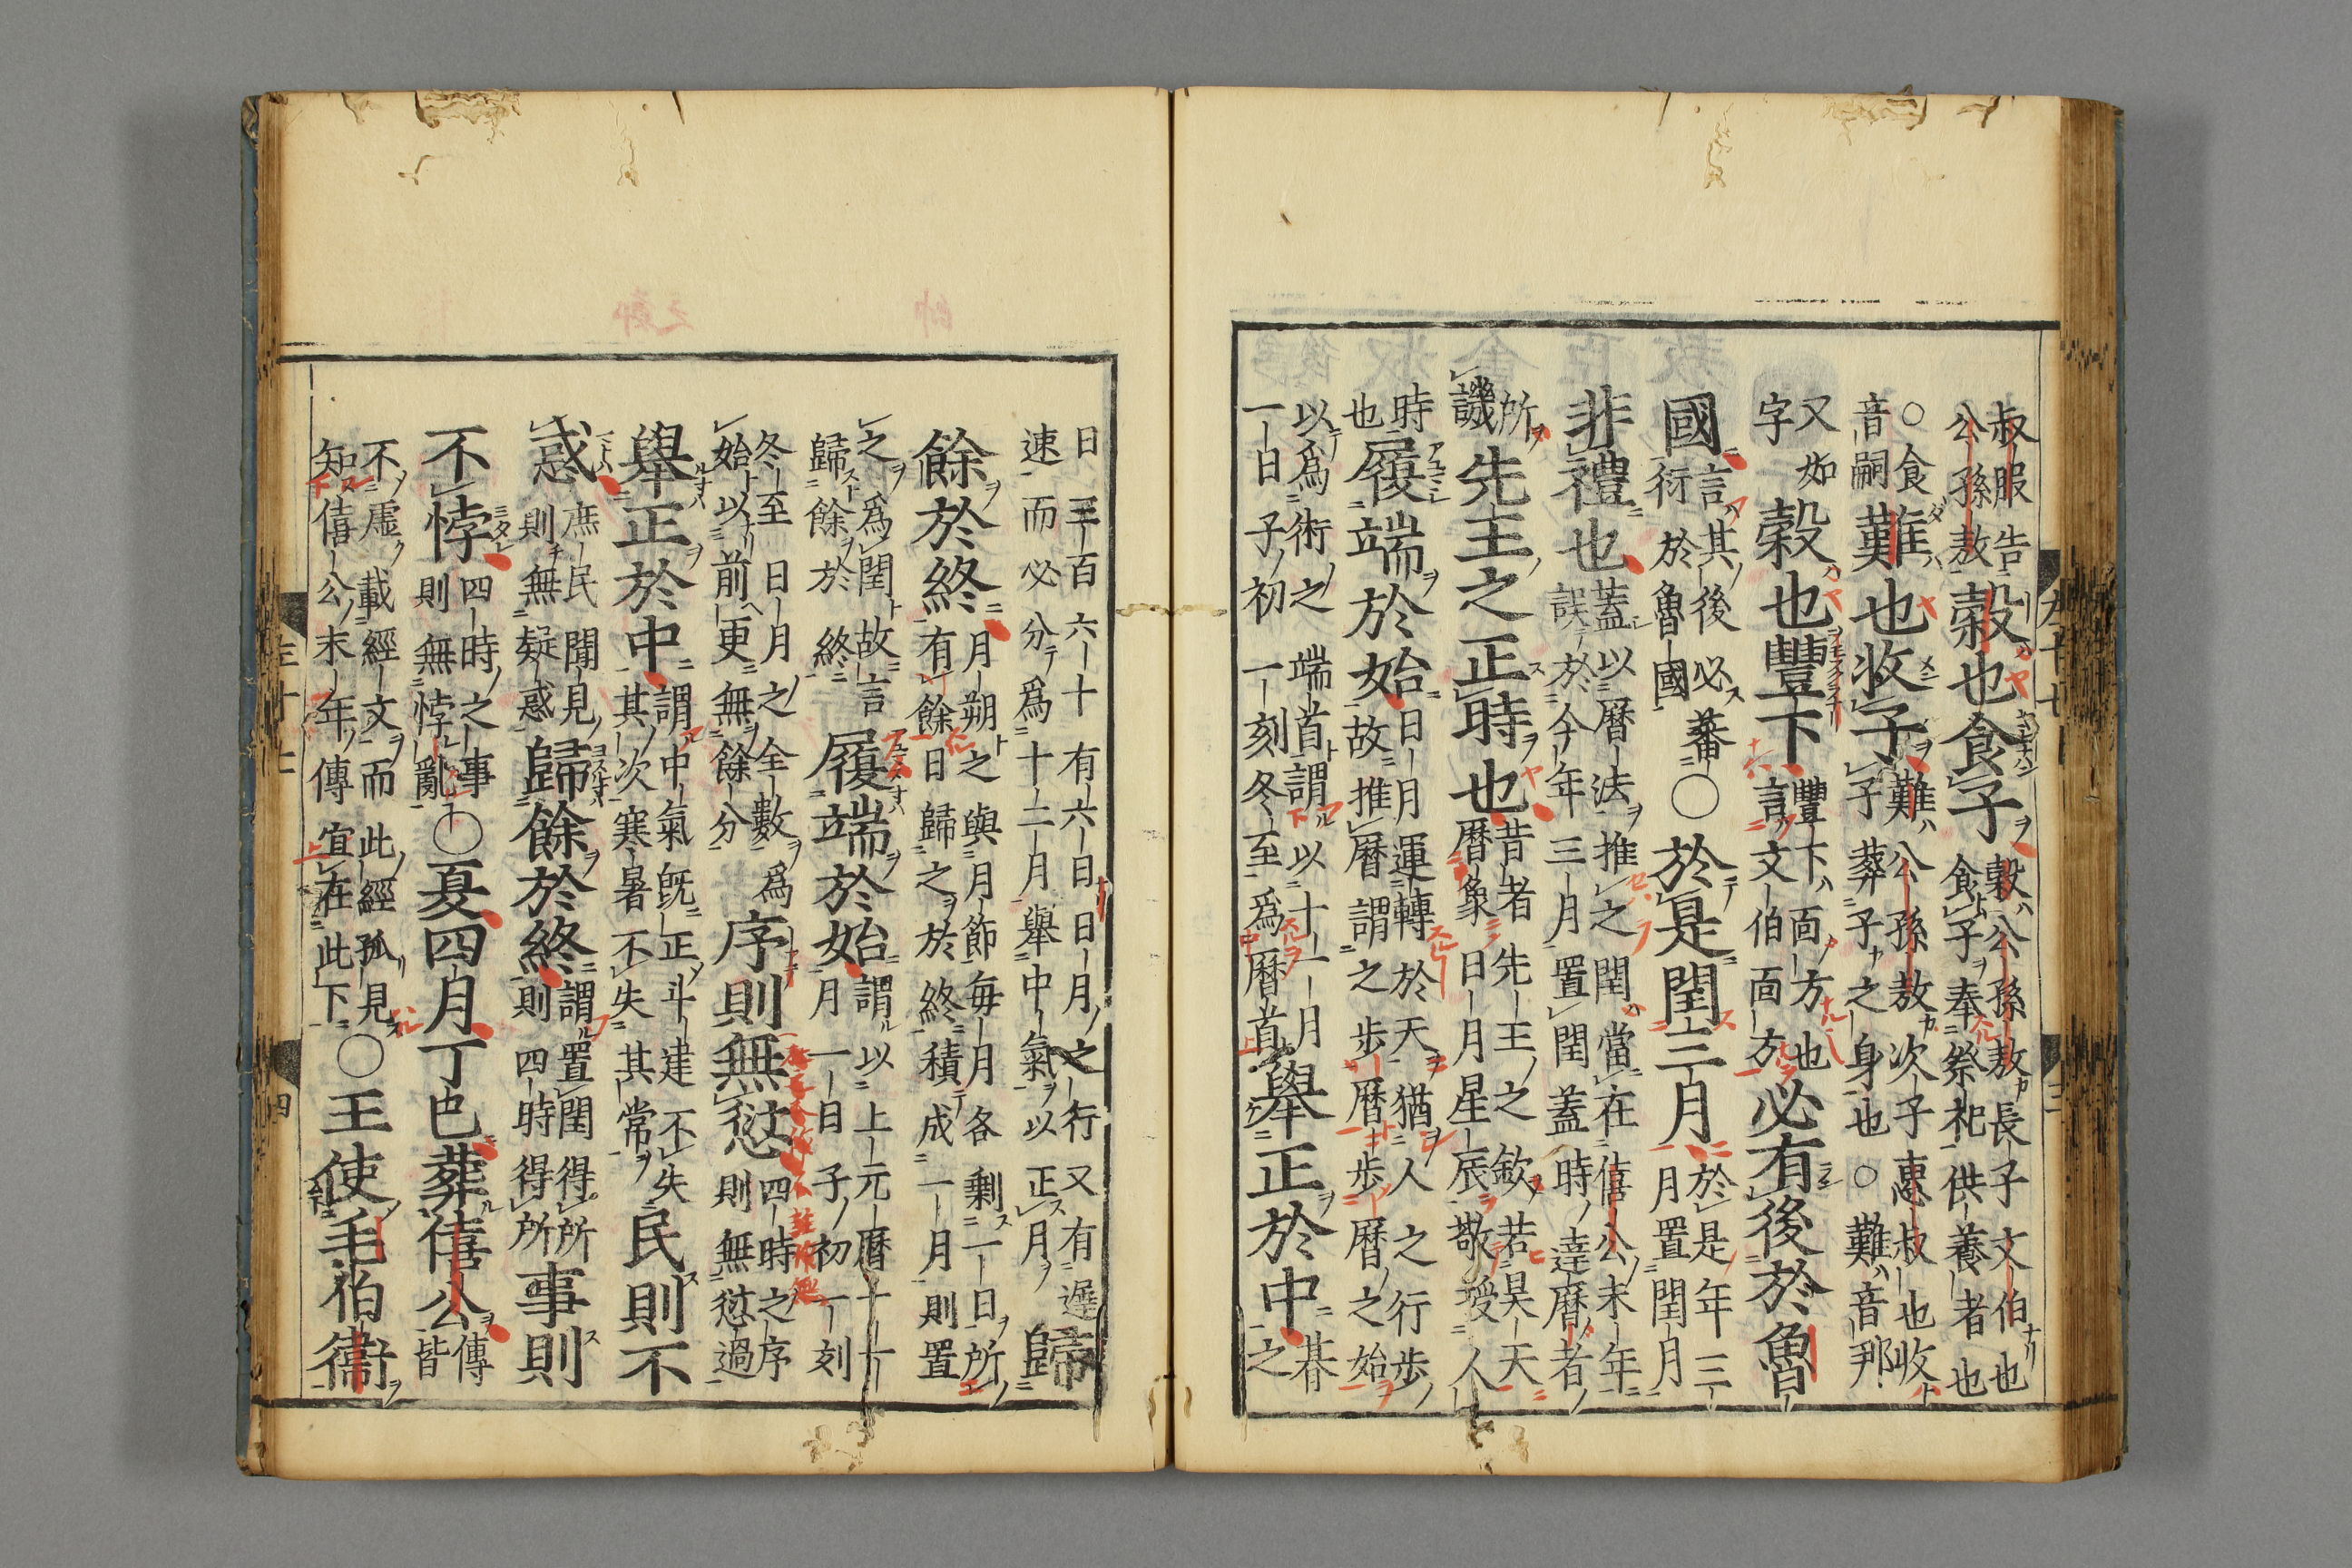 叔服告公孫敖穀也食子穀公孫敖長子文伯也食子奉祭祀供養者也
○食音嗣難也收子難公孫敖次子惠叔也收子葬子之身也○難音那
又如字穀也豐下豐下面方也言文伯面方必有後於魯
國言其後必蕃衍於魯國○於是閏三月於是年三月置閏月
非禮也蓋以曆法推之閏當在僖公末年誤於今年三月置閏蓋時達曆者
所譏先王之正時也昔者先王之欽若昊天曆象日月星辰敬授人
時也履端於始日月運轉於天猶人之行步故推曆謂之步曆步曆之始
以爲術之端首謂以十一月一日子初一刻冬至爲曆首舉正於中朞之
日三百六十有六日日月之行又有遲速而必分爲十二月舉中氣以正月歸
餘於終月朔之與月節每月各剩一日所有餘日歸之於終積成一月則置
之爲閏故言歸餘於終履端於始謂以上元曆十一月一日子初一刻
冬至日月之全數爲始以前更無餘分序則無愆四時之序則無愆過
舉正於中謂中氣旣正斗建不失其次寒暑不失其常民則不
惑庶民聞見則無疑惑歸餘於終謂置閏得所則四時得所事則
不悖四時之事則無悖亂○夏四月丁巳葬僖公傳皆
不虛載經文而此經孤見知僖公末年傳宜在此下○王使毛伯衞